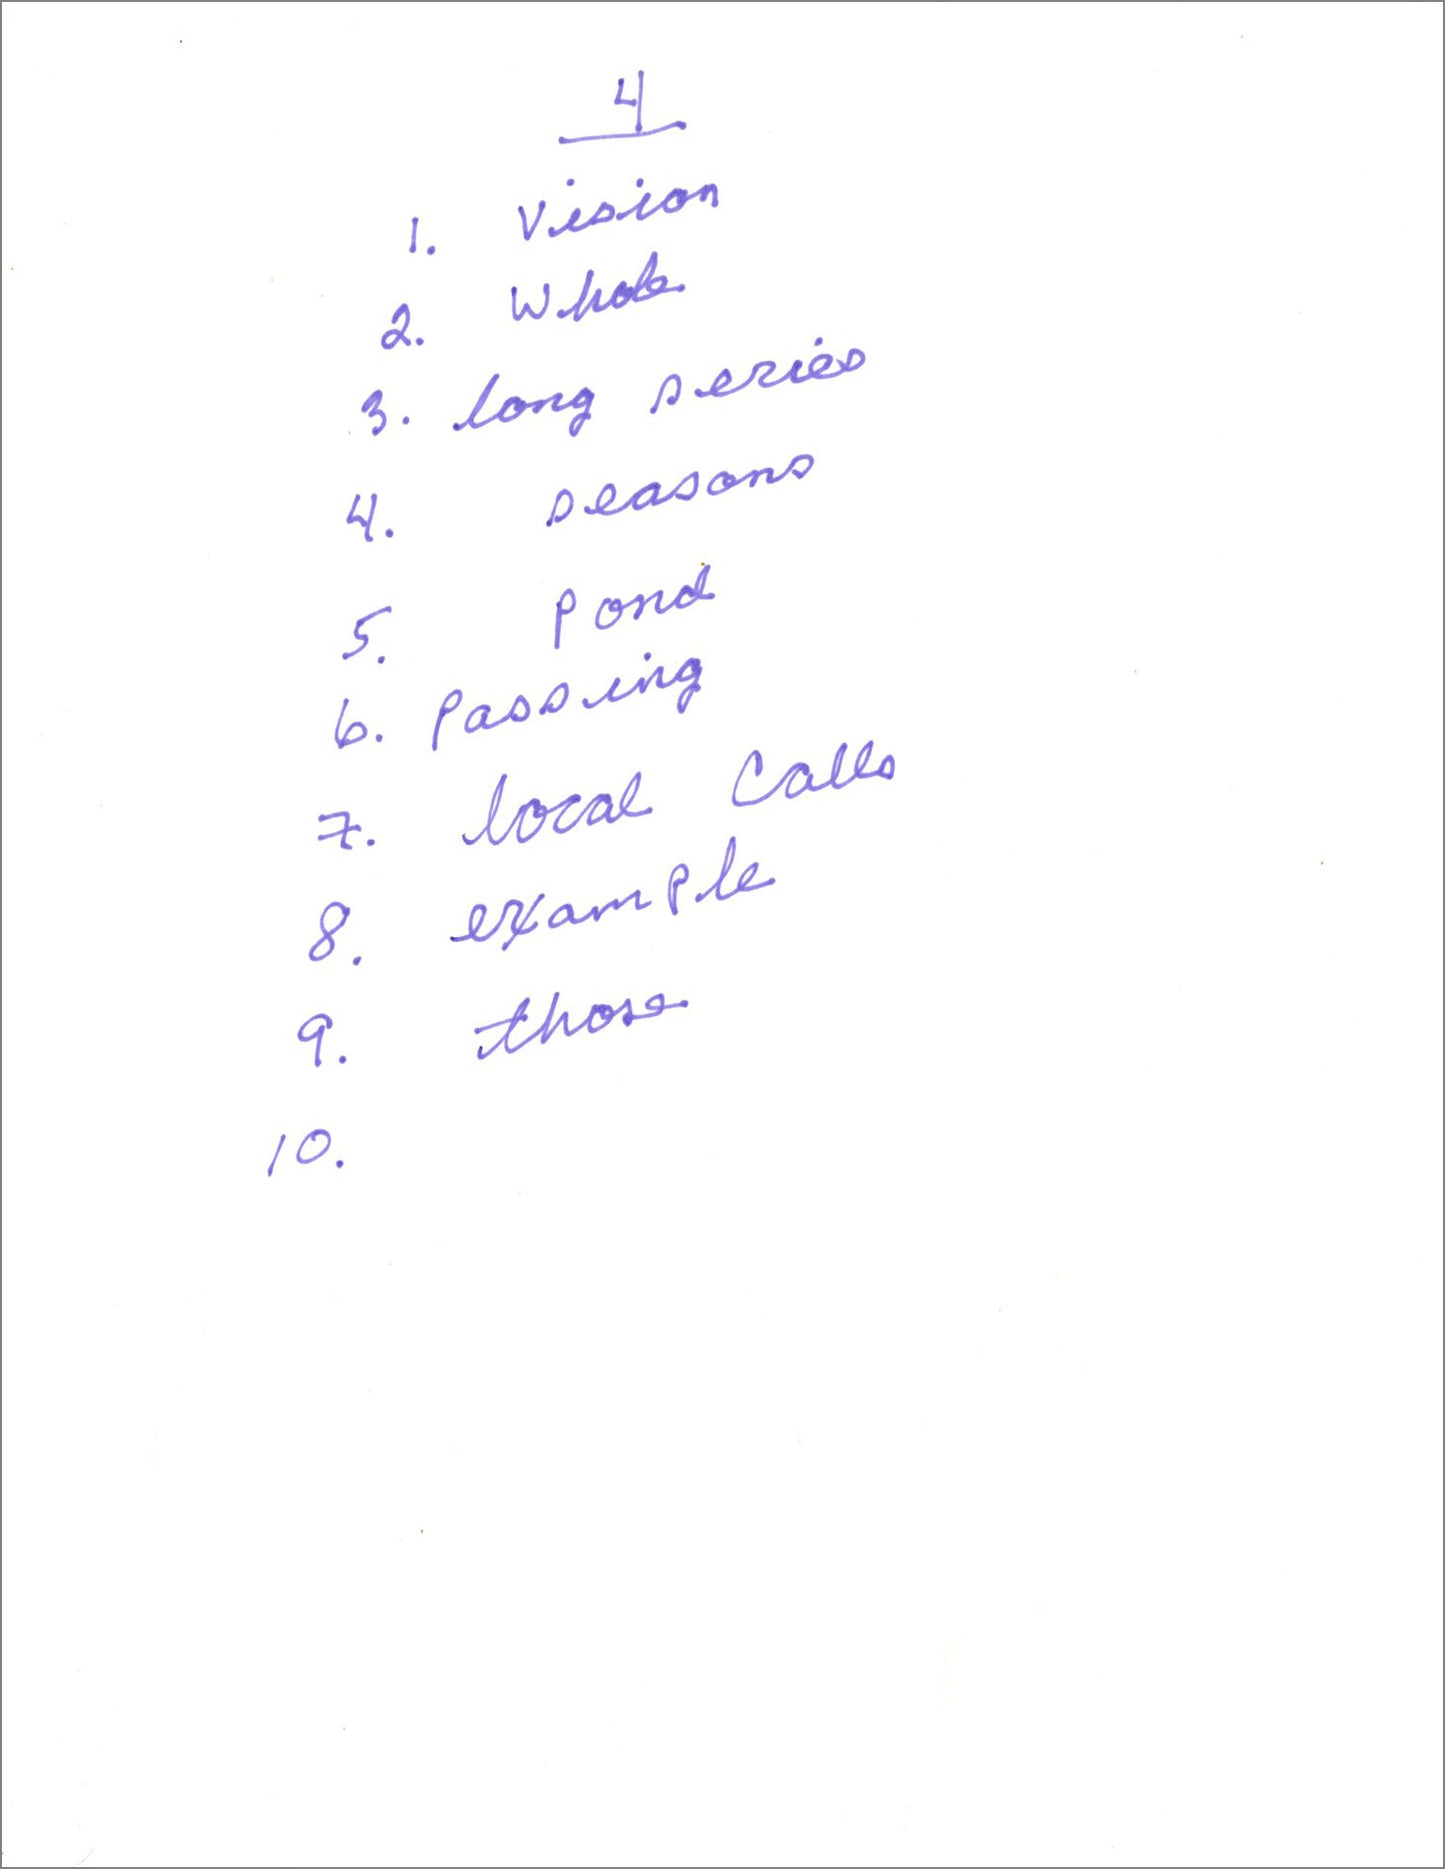 4
1. Vision
2. Whole
3. long series
4. seasons
5. Pond
6. Passing
7. local Calls
8. example
9. those
10.